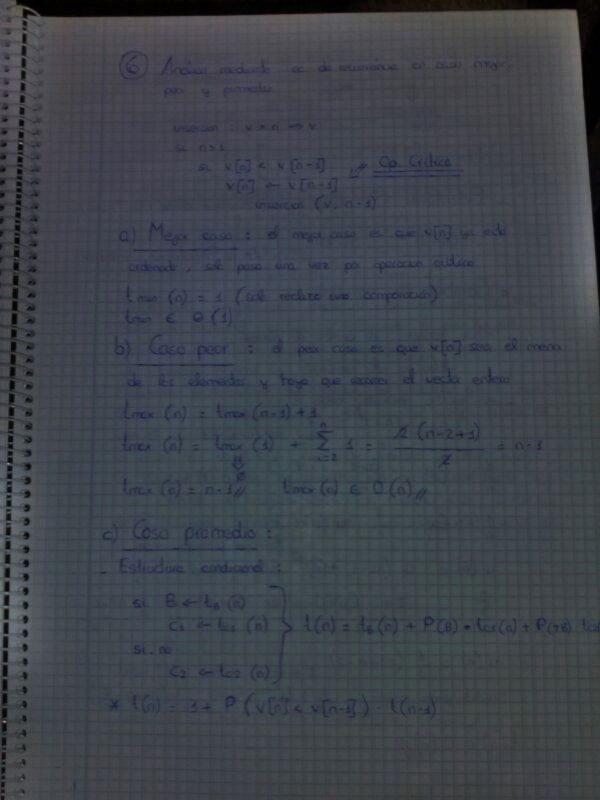 ⑥ Análisis mediante ec de recurrencia en caso mejor
peor y promedio
inserción : v x n → v
si n>1
si v[n] < v[n-1] → Op. Crítica
v[n] ↔ v[n-1]
inserción (v, n-1)
a) Mejor caso : el mejor caso es que v[n] ya esté
ordenado, solo pasa una vez por operación crítica
tmin (n) = 1 (solo realiza una comparación)
tmin ∈ Θ(1)
b) Caso peor : el peor caso es que v[n] sea el menor
de los elementos y haya que recorrer el vector entero
tmax (n) = tmax (n-1) + 1
tmax (n) = tmax (1) + Σ 1 = (n-2+1) = n-1
tmax (n) = n-1 tmax (n) ∈ O(n)
c) Caso promedio :
- Estructura condicional :
si B ← tB (n)
c1 ← tc1 (n) } t(n) = tB(n) + P(B) · tc1(n) + P(¬B)
si no
c2 ← tc2 (n)
* t(n) = 1 + P (v[n] < v[n-1]) · t(n-1)